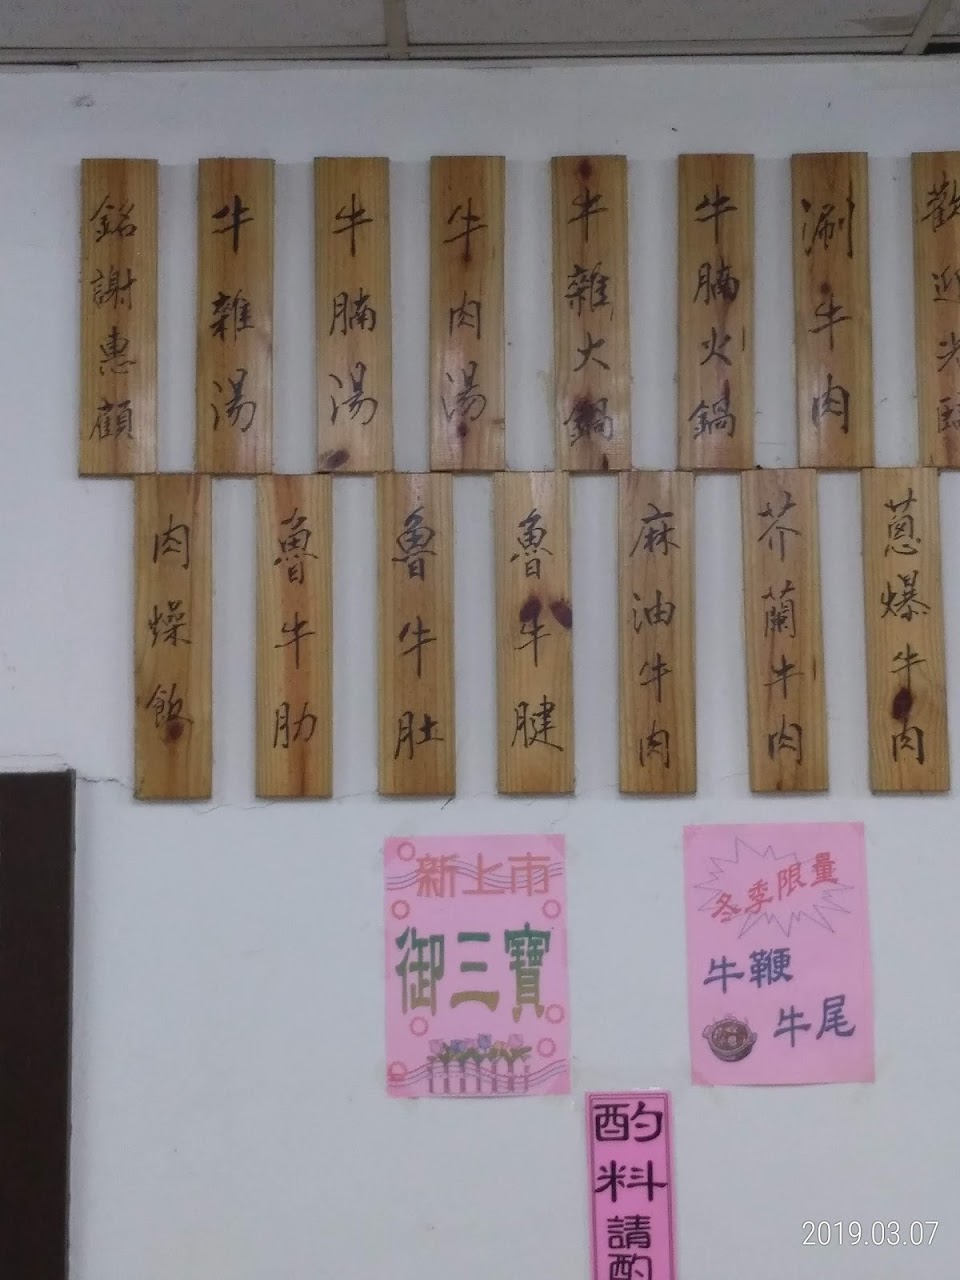 歡迎光臨
涮牛肉
牛腩火鍋
牛雜火鍋
牛肉湯
牛腩湯
牛雜湯
銘謝惠顧
蔥爆牛肉
芥蘭牛肉
麻油牛肉
魯牛腱
魯牛肚
魯牛肋
肉燥飯
新上市
御三寶
冬季限量
牛鞭
牛尾
酌料請酌
2019.03.07